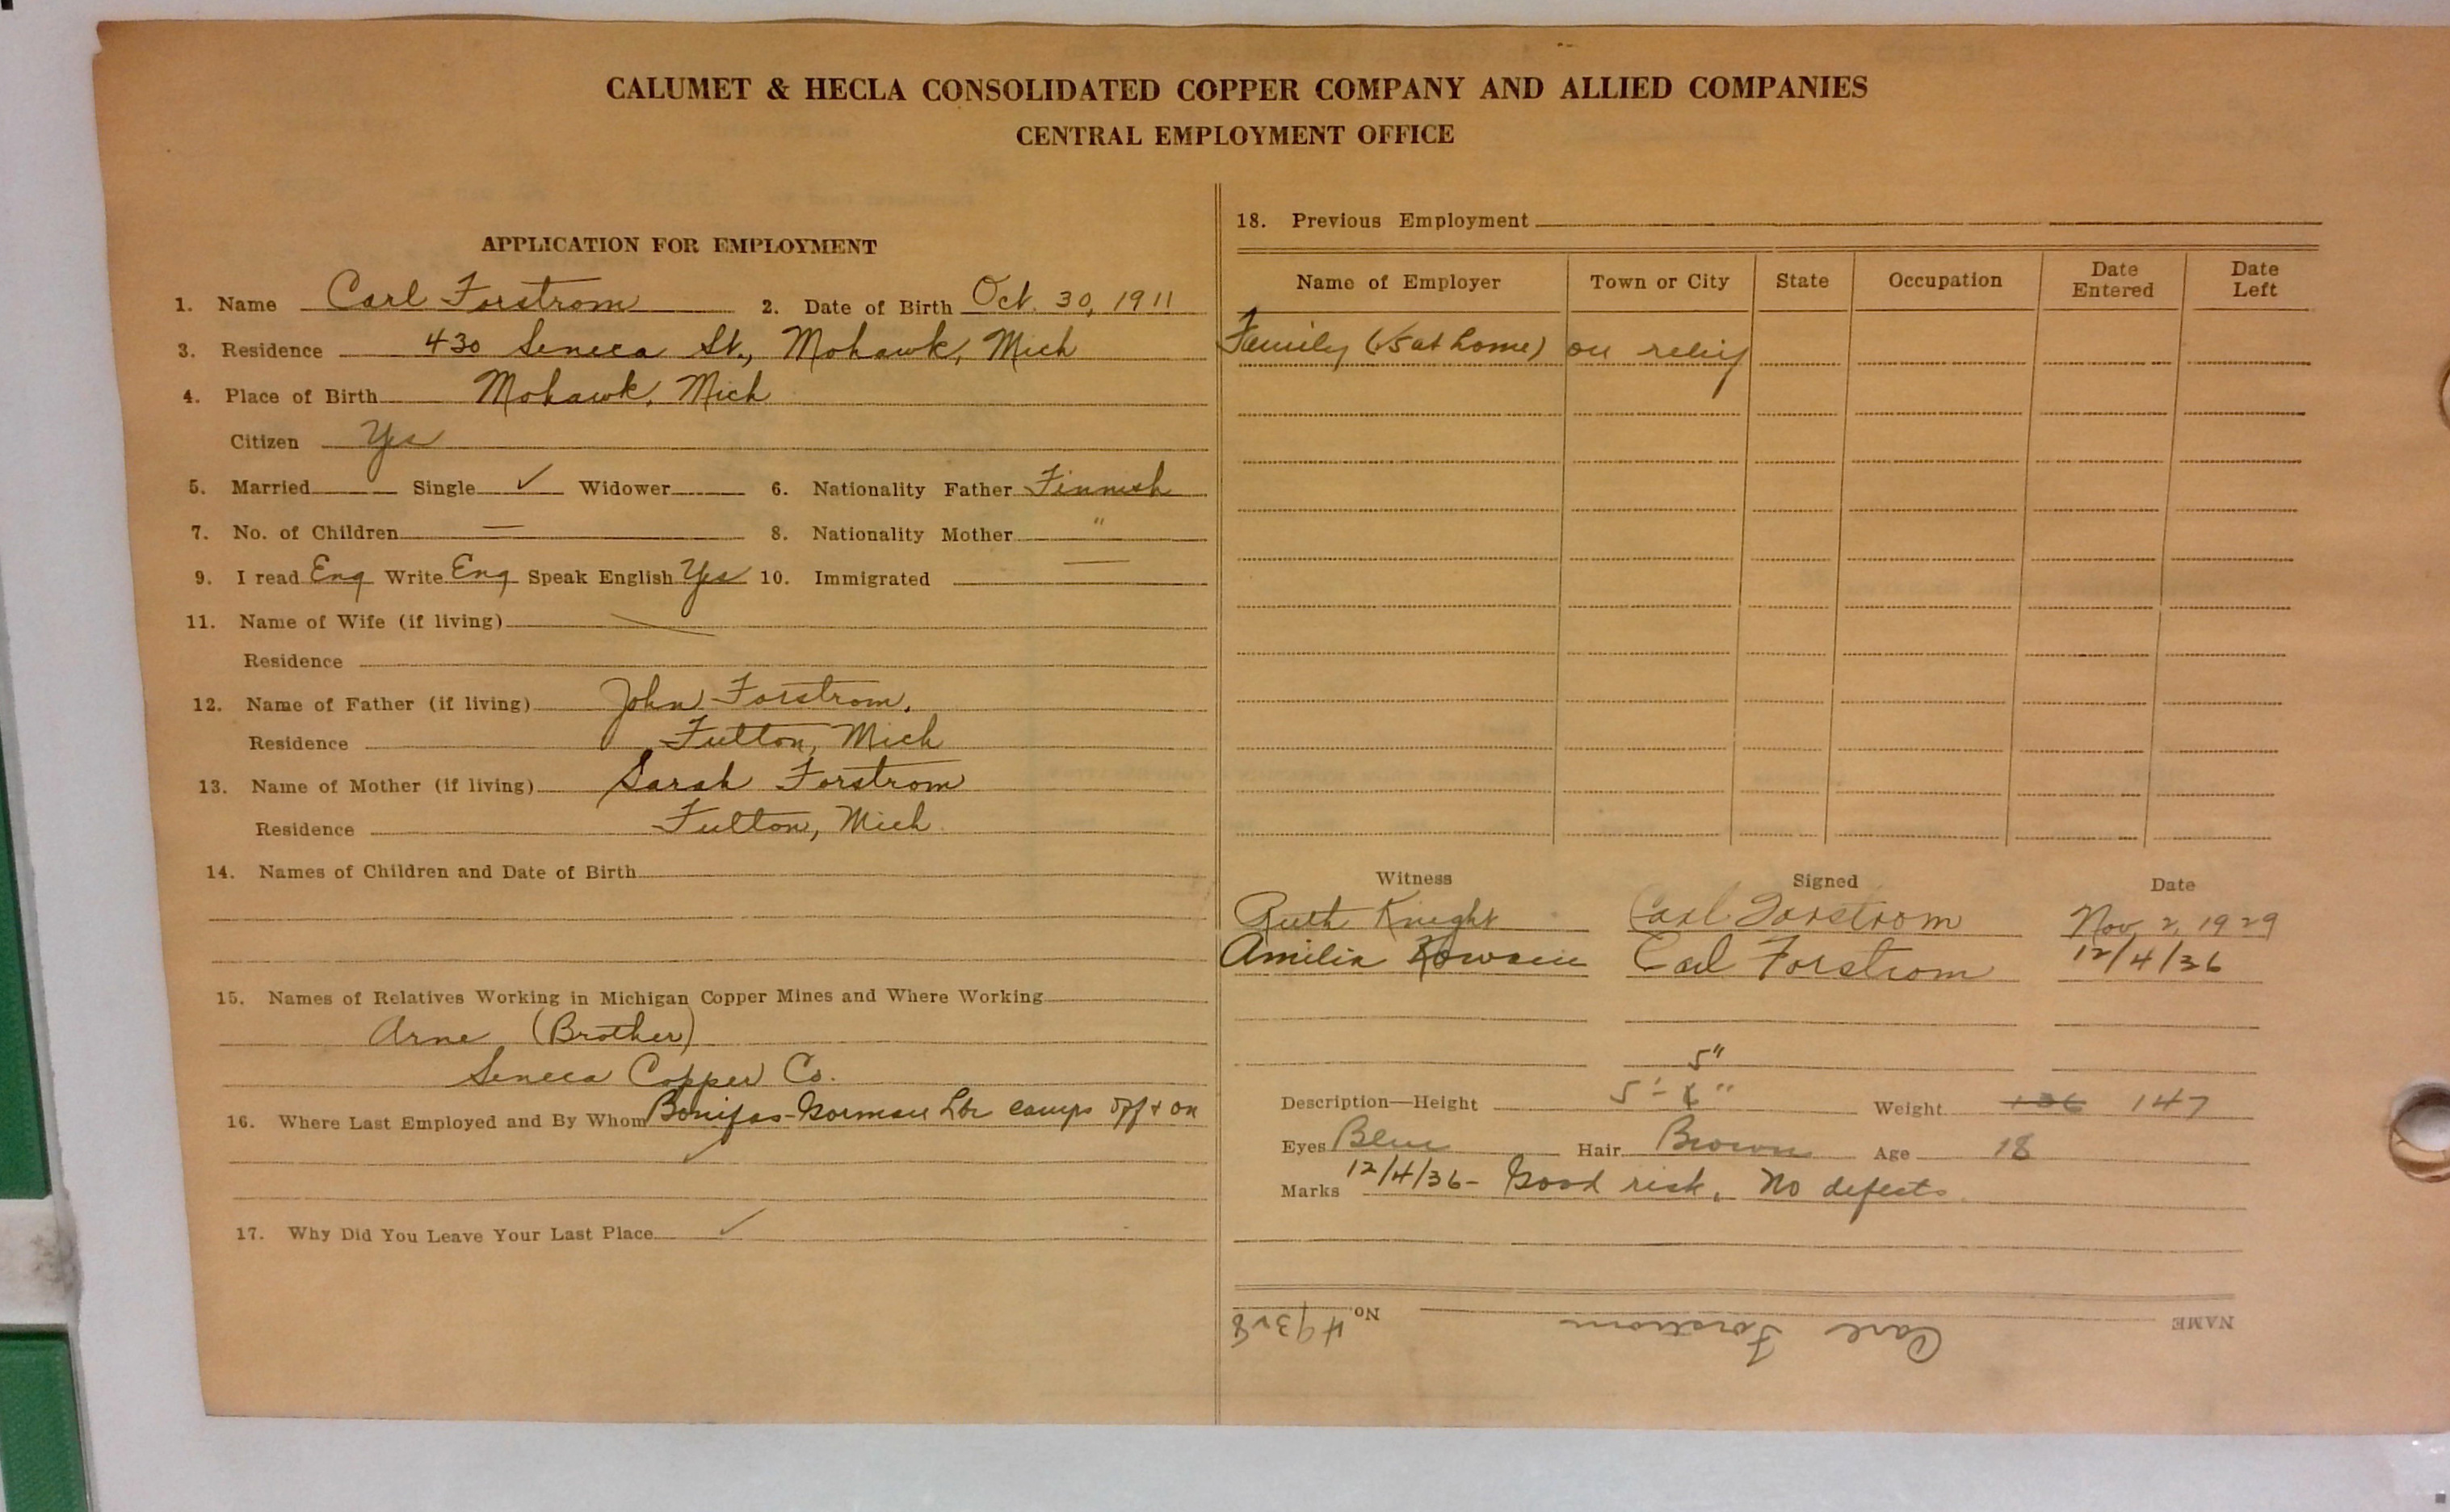 CALUMET & HECLA CONSOLIDATED COPPER COMPANY AND ALLIED COMPANIES
CENTRAL EMPLOYMENT OFFICE
APPLICATION FOR EMPLOYMENT
1. Name Carl Forstrom 2. Date of Birth Oct. 30, 1911
3. Residence 430 Seneca St., Mohawk, Mich
4. Place of Birth Mohawk, Mich
Citizen Yes
5. Married Single ✓ Widower 6. Nationality Father Finnish
7. No. of Children — 8. Nationality Mother "
9. I read Eng Write Eng Speak English Yes 10. Immigrated —
11. Name of Wife (if living)
Residence
12. Name of Father (if living) John Forstrom,
Residence Fulton, Mich
13. Name of Mother (if living) Sarah Forstrom
Residence Fulton, Mich
14. Names of Children and Date of Birth
15. Names of Relatives Working in Michigan Copper Mines and Where Working
Arne (Brother)
Seneca Copper Co.
16. Where Last Employed and By Whom Bonifas-Gorman Lbr camps off & on
✓
17. Why Did You Leave Your Last Place ✓
18. Previous Employment
Name of Employer Town or City State Occupation Date Entered Date Left
Family (5 at home) on relief
Witness Signed Date
Ruth Knight Carl Forstrom Nov. 2, 1929
Amilia Carl Forstrom 12/4/36
5"
Description—Height 5'- 6" Weight 136 147
Eyes Blue Hair Brown Age 18
Marks 12/4/36- Good risk. No defects.
NAME Carl Forstrom No. 49328